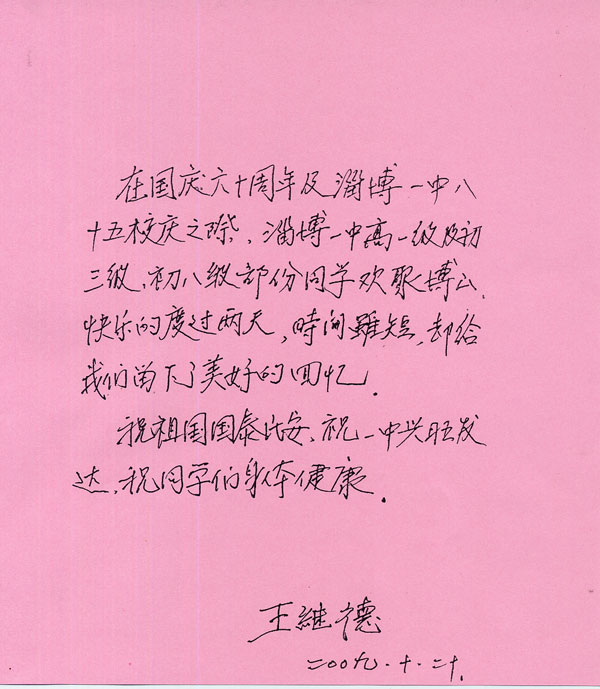 在国庆六十周年及淄博一中八
十五校庆之际、淄博一中高一级及初
三级、初八级部份同学欢聚博山、
快乐的度过两天，時间雖短，却给
我们留下了美好的回忆．
祝祖国国泰民安、祝一中兴旺发
达、祝同学们身体健康．
王继德
二00九.十.二十.